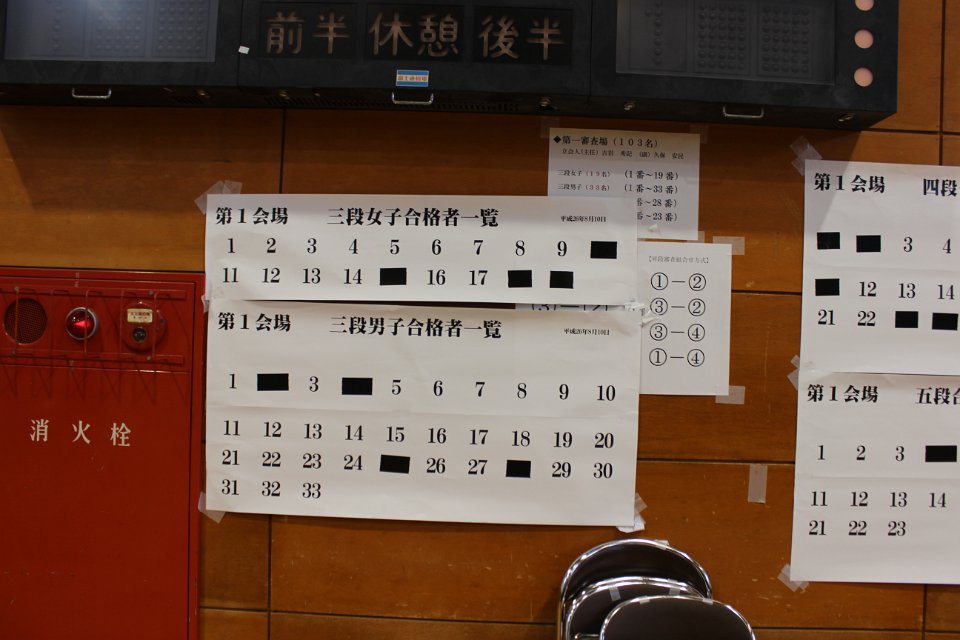 前半 休憩 後半
◆第一審査場（１０３名）
三段女子（１９名） （１番～19番）
三段男子（３３名） （１番～33番）
番～28番）
番～23番）
第１会場 三段女子合格者一覧 平成26年8月10日
1 2 3 4 5 6 7 8 9
11 12 13 14 16 17
第１会場 三段男子合格者一覧 平成26年8月10日
1 3 5 6 7 8 9 10
11 12 13 14 15 16 17 18 19 20
21 22 23 24 26 27 29 30
31 32 33
【昇段審査組合せ方式】
①－②
③－②
③－④
①－④
第１会場 四段
3 4
12 13 14
21 22
第１会場 五段合
1 2 3
11 12 13 14
21 22 23
消火栓